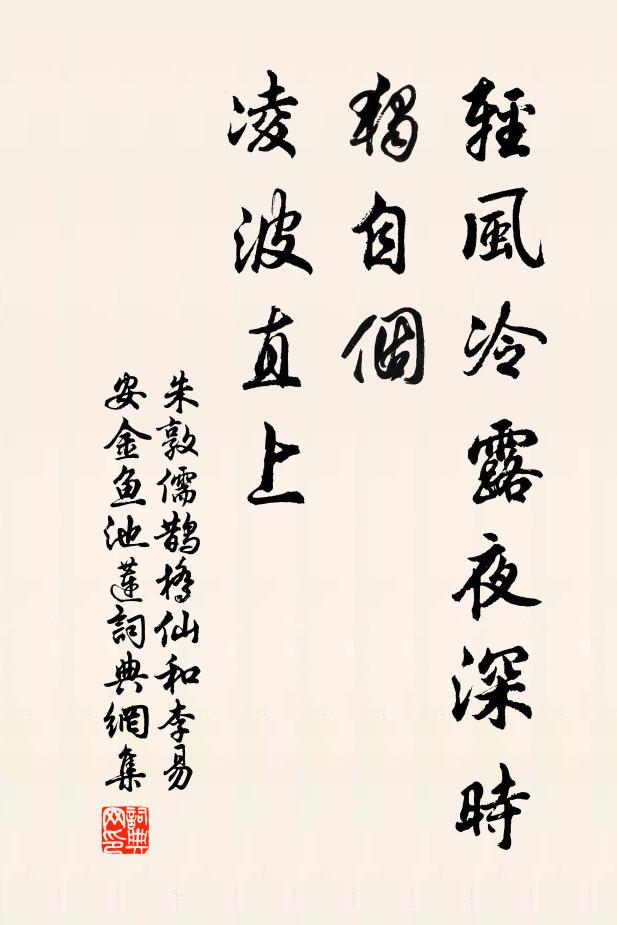 輕風冷露夜深時
獨自個
凌波直上
朱敦儒鵲橋仙和李易
安金鱼池蓮詞典網集
詞典网印